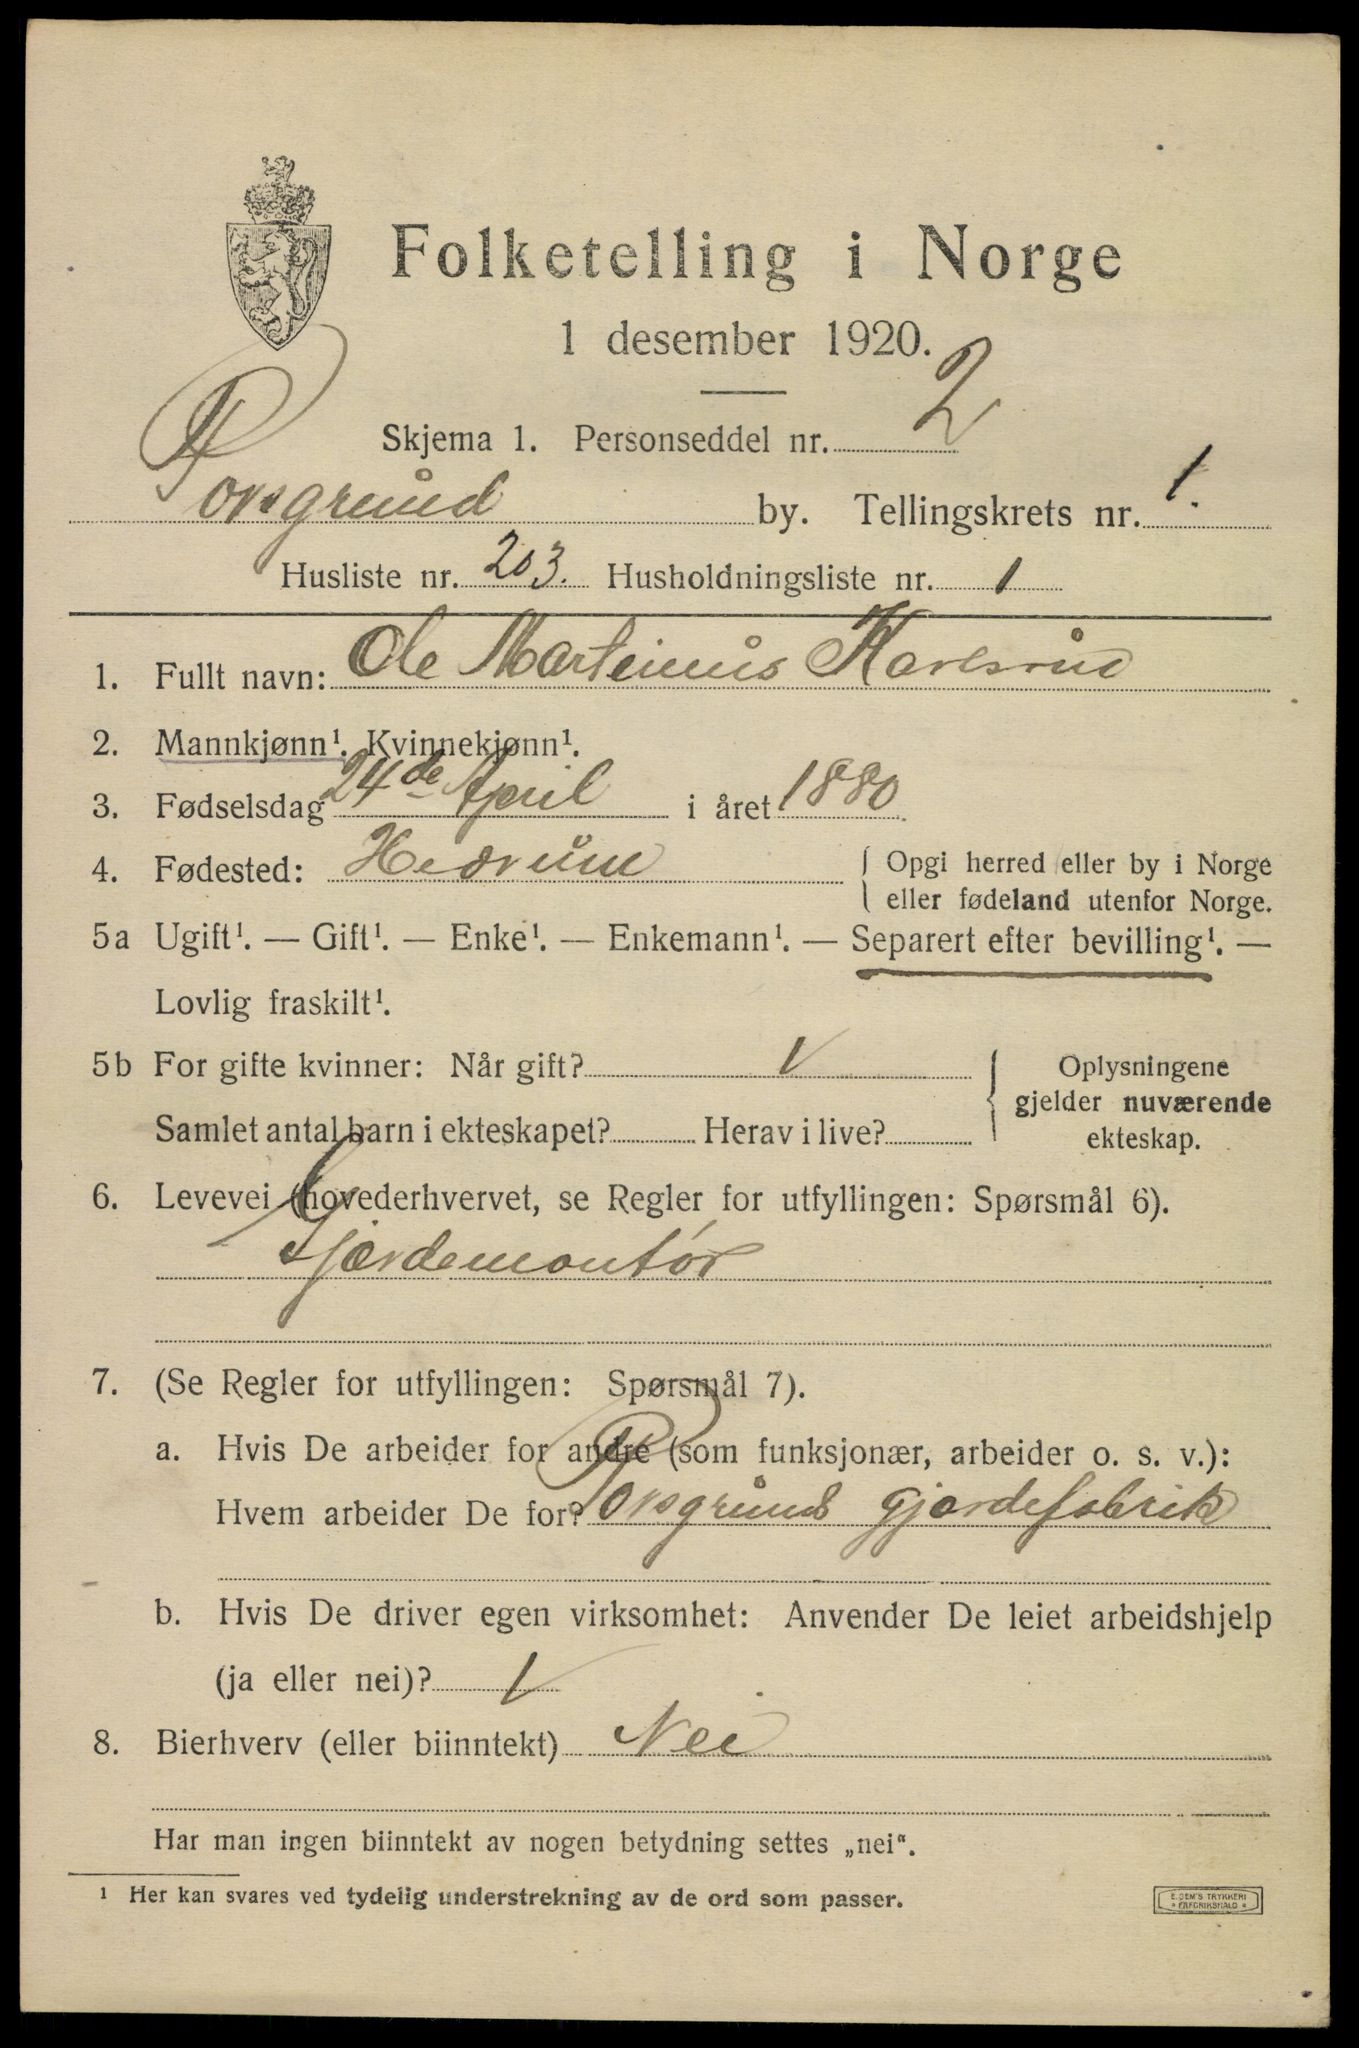 Folketelling i Norge
1 desember 1920.
Skjema 1. Personseddel nr. 2
Porsgrund by. Tellingskrets nr. 1.
Husliste nr. 203. Husholdningsliste nr. 1
1. Fullt navn: Ole Marteinius Karlsrud
2. Mannkjønn¹. Kvinnekjønn¹.
3. Fødselsdag 24de April i året 1880
4. Fødested: Hedrum { Opgi herred eller by i Norge
eller fødeland utenfor Norge.
5a Ugift¹. — Gift¹. — Enke¹. — Enkemann¹. — Separert efter bevilling¹. —
Lovlig fraskilt¹.
5b For gifte kvinner: Når gift? V
Samlet antal barn i ekteskapet? Herav i live?
{ Oplysningene
gjelder nuværende
ekteskap.
6. Levevei (hovederhvervet, se Regler for utfyllingen: Spørsmål 6).
Gjærdemontør
7. (Se Regler for utfyllingen: Spørsmål 7).
a. Hvis De arbeider for andre (som funksjonær, arbeider o. s. v.):
Hvem arbeider De for? Porsgrunds Gjærdefabrik
b. Hvis De driver egen virksomhet: Anvender De leiet arbeidshjelp
(ja eller nei)? V
8. Bierhverv (eller biinntekt) Nei
Har man ingen biinntekt av nogen betydning settes „nei“.
¹ Her kan svares ved tydelig understrekning av de ord som passer.
E. SEM'S TRYKKERI
* FREDRIKSHALD *